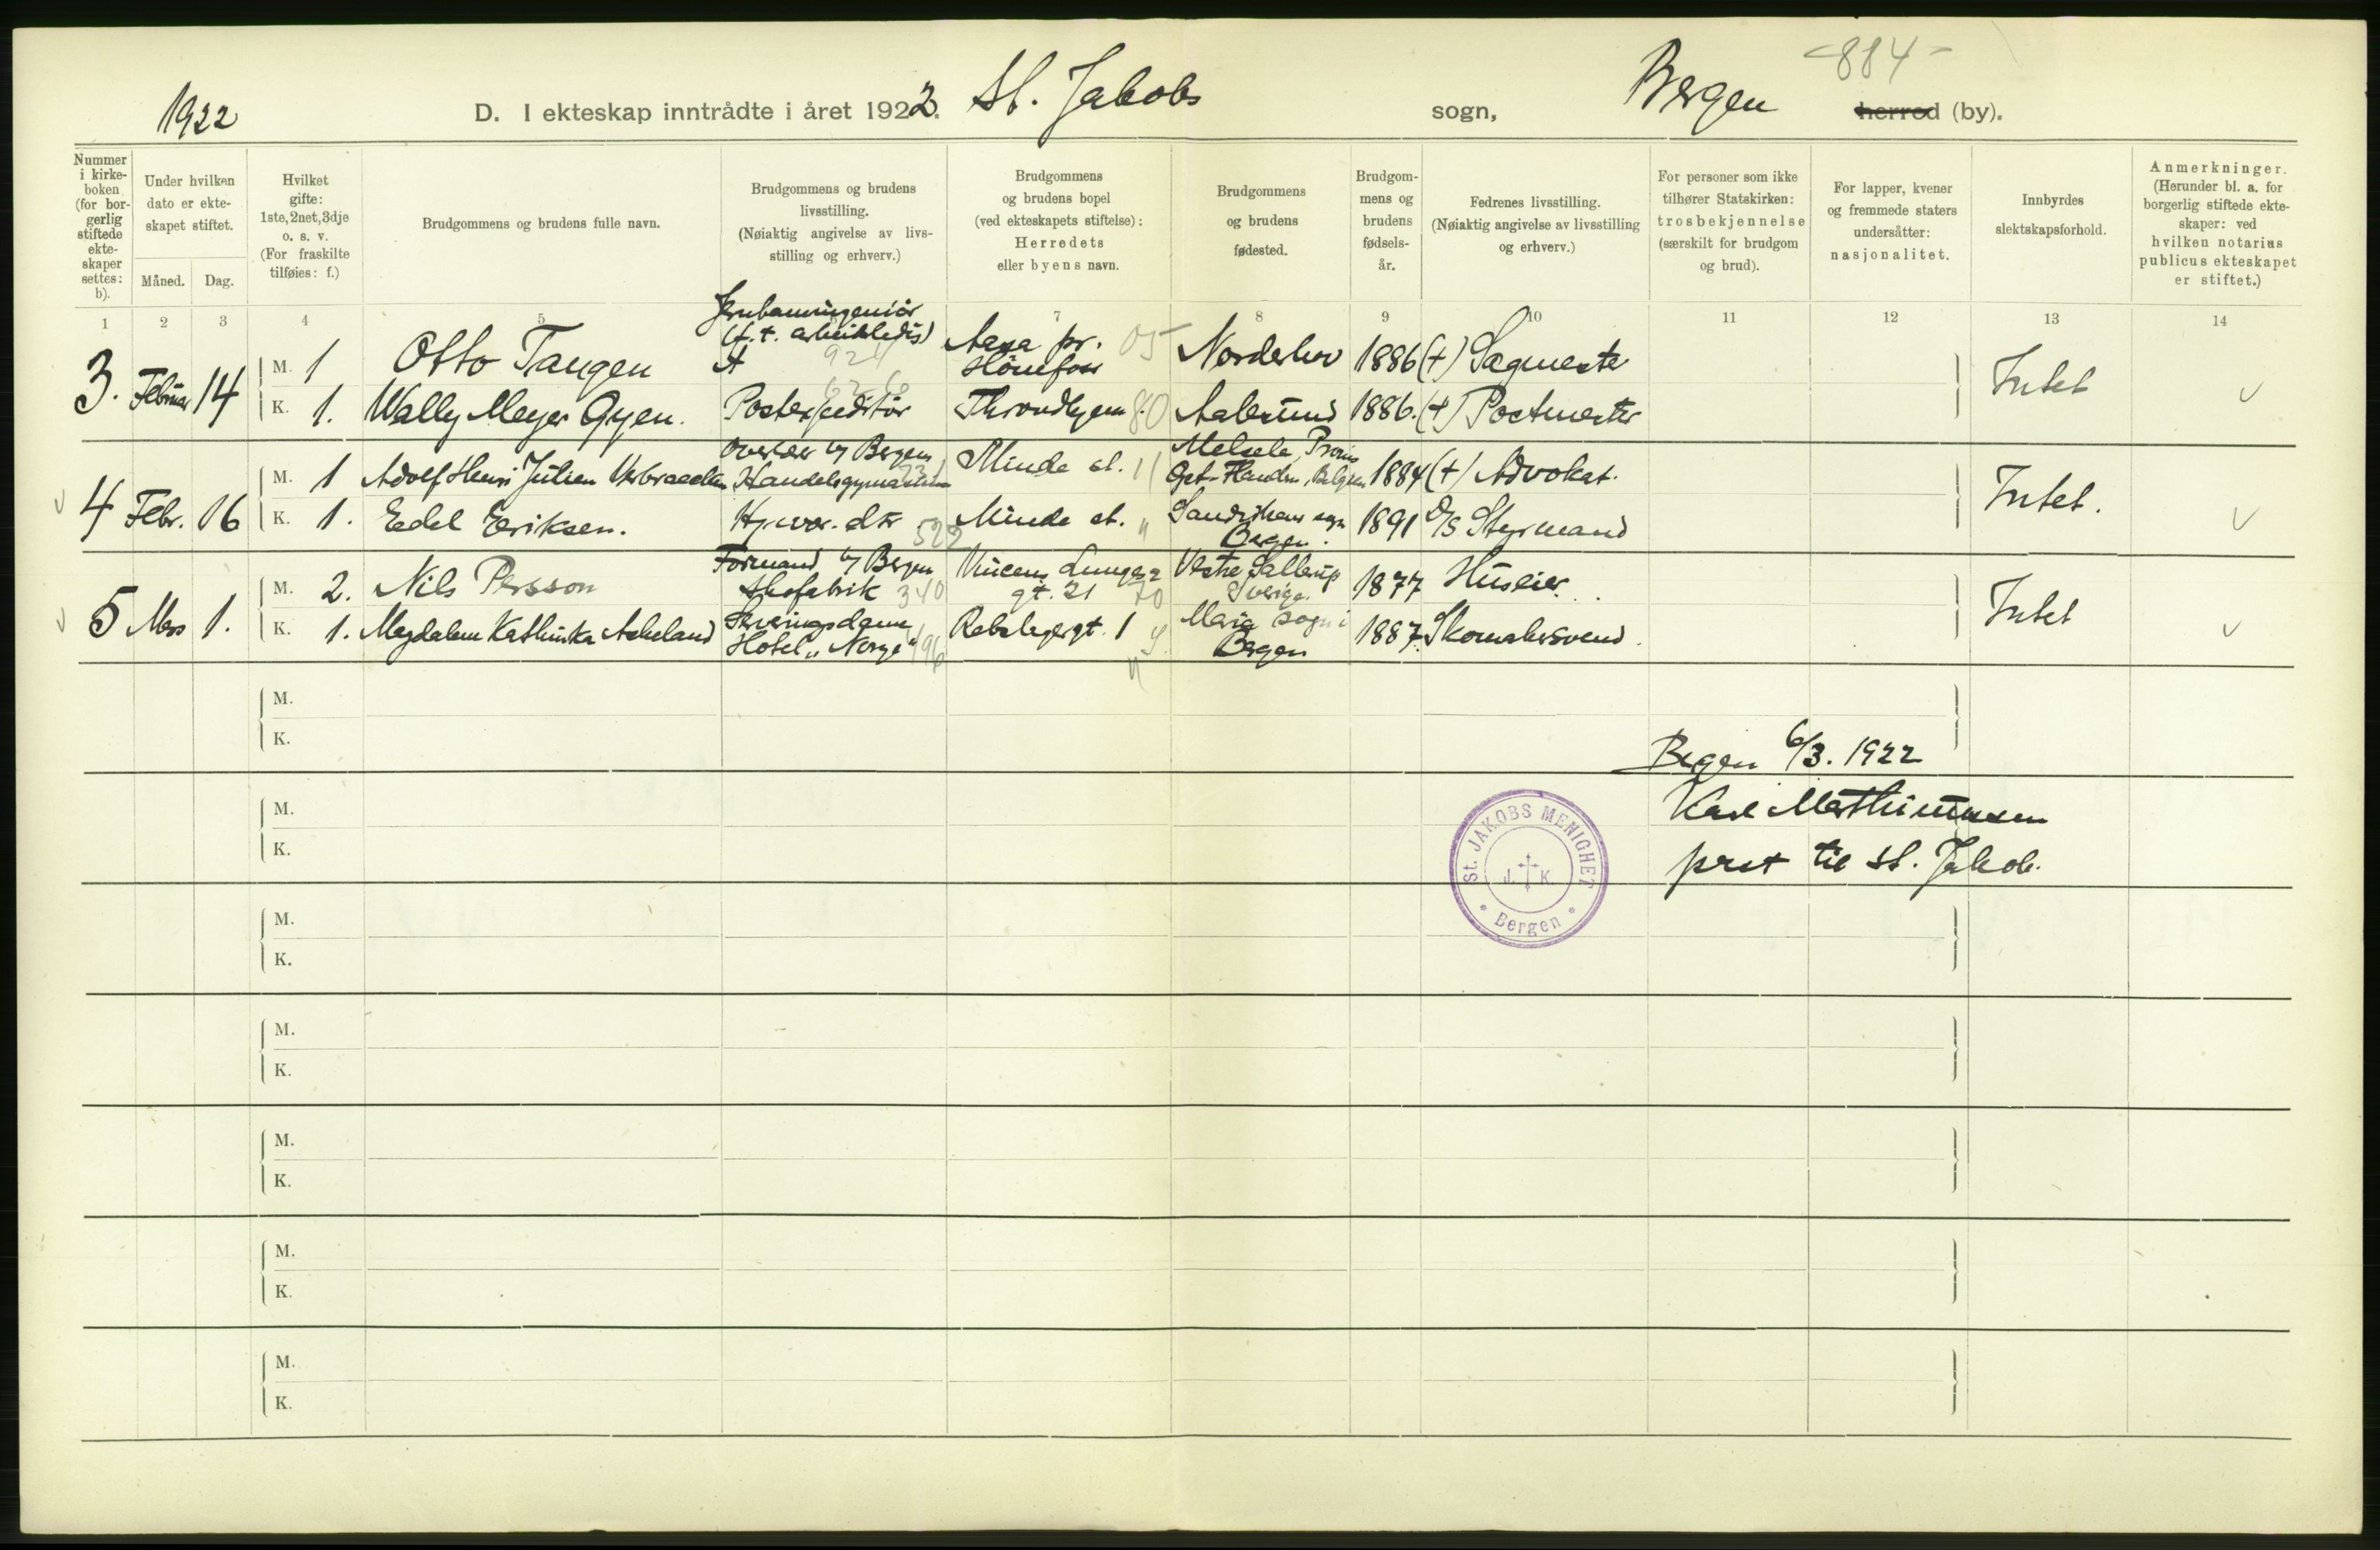 -884-
1922 D. I ekteskap inntrådte i året 1922. St. Jakobs sogn, Bergen herred (by).
Nummer i kirkeboken (for borgerlig stiftede ekteskaper settes: b).
Under hvilken dato er ekteskapet stiftet.
Måned. Dag.
Hvilket gifte: 1ste, 2net, 3dje o. s. v. (For fraskilte tilføies: f.)
Brudgommens og brudens fulle navn.
Brudgommens og brudens livsstilling. (Nøiaktig angivelse av livsstilling og erhverv.)
Brudgommens og brudens bopel (ved ekteskapets stiftelse): Herredets eller byens navn.
Brudgommens og brudens fødested.
Brudgommens og brudens fødselsår.
Fedrenes livsstilling. (Nøiaktig angivelse av livsstilling og erhverv.)
For personer som ikke tilhører Statskirken: trosbekjennelse (særskilt for brudgom og brud).
For lapper, kvener og fremmede staters undersåtter: nasjonalitet.
Innbyrdes slektskapsforhold.
Anmerkninger. (Herunder bl. a. for borgerlig stiftede ekteskaper: ved hvilken notarius publicus ekteskapet er stiftet.)
1 2 3 4 5 7 8 9 10 11 12 13 14
3. Februar 14 M. 1 Otto Tangen Jernbaneingeniör (f. t. arbeidsledig) Aasa pr. Hönefoss 05 Norderhov 1886 (+) Sagmester Intet
K. 1. Wally Meyer Gyen. Postexpeditör Throndhjem 80 Aalesund 1886. (+) Postmester
4 Febr. 16 M. 1 Adolf Henri Julien Verbraeken Overlærer v/ Bergens Handelsgymnasium Minde st. 11 Melsele, Provins Øst-Flandern, Belgien 1884 (+) Advokat. Intet.
K. 1. Edel Eriksen. Hj.vær. dtr 522 Minde st. " Sandvikens sogn Bergen. 1891 D/S Styrmand
5 Mars 1. M. 2. Nils Persson Formand v/ Bergen Skofabrik 340 Vincens Lunges gt. 21 70 Vestre Sallerup Sverige. 1877 Huseier. Intet
K. 1. Magdalena Kathinka Askeland Serveringsdame Hotel „Norge" 196 Rebslagergt. 1 Maria sogn i Bergen 1887. Skomakersvend.
M.
K.
Bergen 6/3. 1922
M.
K.
Karl Marthinussen
prest til St. Jakob.
St. JAKOBS MENIGHET
J. K.
Bergen
M.
K.
M.
K.
M.
K.
M.
K.
M.
K.